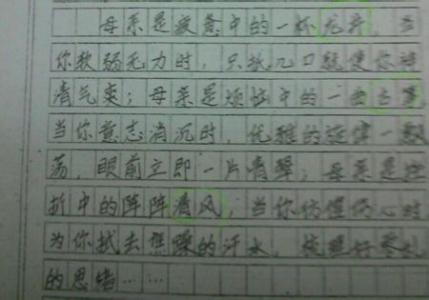 母亲是疲惫中的一杯龙井，当
你软弱无力时，只抿几口就使你神
清气爽；母亲是烦恼中的一曲古筝
当你意志消沉时，优雅的旋律一飘
荡，眼前立即一片青翠；母亲是挫
折中的阵阵清风，当你彷徨伤心时
为你拭去焦躁的汗水，梳理好零乱
的思绪……